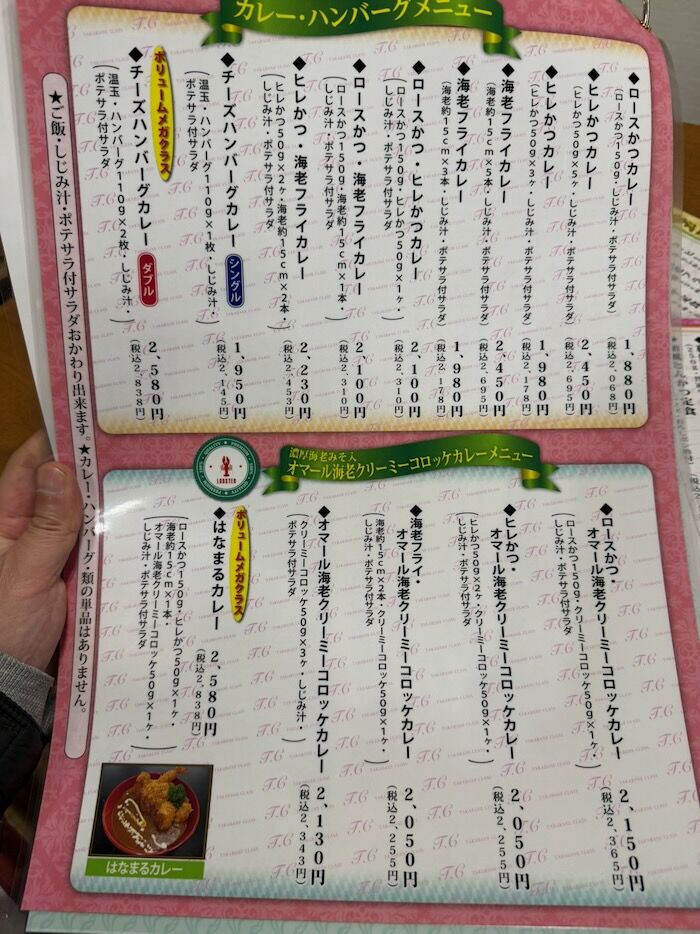 カレー・ハンバーグメニュー
◆ロースかつカレー
(ロースかつ150g・しじみ汁・ポテサラ付サラダ)
1,880円
(税込2,068円)
◆ヒレかつカレー
(ヒレかつ50g×5ヶ・しじみ汁・ポテサラ付サラダ)
2,450円
(税込2,695円)
◆ヒレかつカレー
(ヒレかつ50g×3ヶ・しじみ汁・ポテサラ付サラダ)
1,980円
(税込2,178円)
◆海老フライカレー
(海老約15cm×5本・しじみ汁・ポテサラ付サラダ)
2,450円
(税込2,695円)
◆海老フライカレー
(海老約15cm×3本・しじみ汁・ポテサラ付サラダ)
1,980円
(税込2,178円)
◆ロースかつ・ヒレかつカレー
(ロースかつ150g・ヒレかつ50g×1ヶ・
しじみ汁・ポテサラ付サラダ)
2,100円
(税込2,310円)
◆ロースかつ・海老フライカレー
(ロースかつ150g・海老約15cm×1本・
しじみ汁・ポテサラ付サラダ)
2,100円
(税込2,310円)
◆ヒレかつ・海老フライカレー
(ヒレかつ50g×2ヶ・海老約15cm×2本・
しじみ汁・ポテサラ付サラダ)
2,230円
(税込2,453円)
◆チーズハンバーグカレー シングル
(温玉・ハンバーグ110g×1枚・しじみ汁・
ポテサラ付サラダ)
1,950円
(税込2,145円)
ボリュームメガクラス
◆チーズハンバーグカレー ダブル
(温玉・ハンバーグ110g×2枚・しじみ汁・
ポテサラ付サラダ)
2,580円
(税込2,838円)
★ご飯・しじみ汁・ポテサラ付サラダおかわり出来ます。★カレー・ハンバーグ・類の単品はありません。
LOBSTER
濃厚海老みそ入
オマール海老クリーミーコロッケカレーメニュー
◆ロースかつ・
オマール海老クリーミーコロッケカレー
(ロースかつ150g・クリーミーコロッケ50g×1ヶ・
しじみ汁・ポテサラ付サラダ)
2,150円
(税込2,365円)
◆ヒレかつ・
オマール海老クリーミーコロッケカレー
(ヒレかつ50g×2ヶ・クリーミーコロッケ50g×1ヶ・
しじみ汁・ポテサラ付サラダ)
2,050円
(税込2,255円)
◆海老フライ・
オマール海老クリーミーコロッケカレー
(海老約15cm×2本・クリーミーコロッケ50g×1ヶ・
しじみ汁・ポテサラ付サラダ)
2,050円
(税込2,255円)
◆オマール海老クリーミーコロッケカレー
(クリーミーコロッケ50g×3ヶ・しじみ汁・
ポテサラ付サラダ)
2,130円
(税込2,343円)
ボリュームメガクラス
◆はなまるカレー
2,580円
(税込2,838円)
(ロースかつ150g・ヒレかつ50g×1ヶ・
海老約15cm×1本・
オマール海老クリーミーコロッケ50g×1ヶ・
しじみ汁・ポテサラ付サラダ)
はなまるカレー